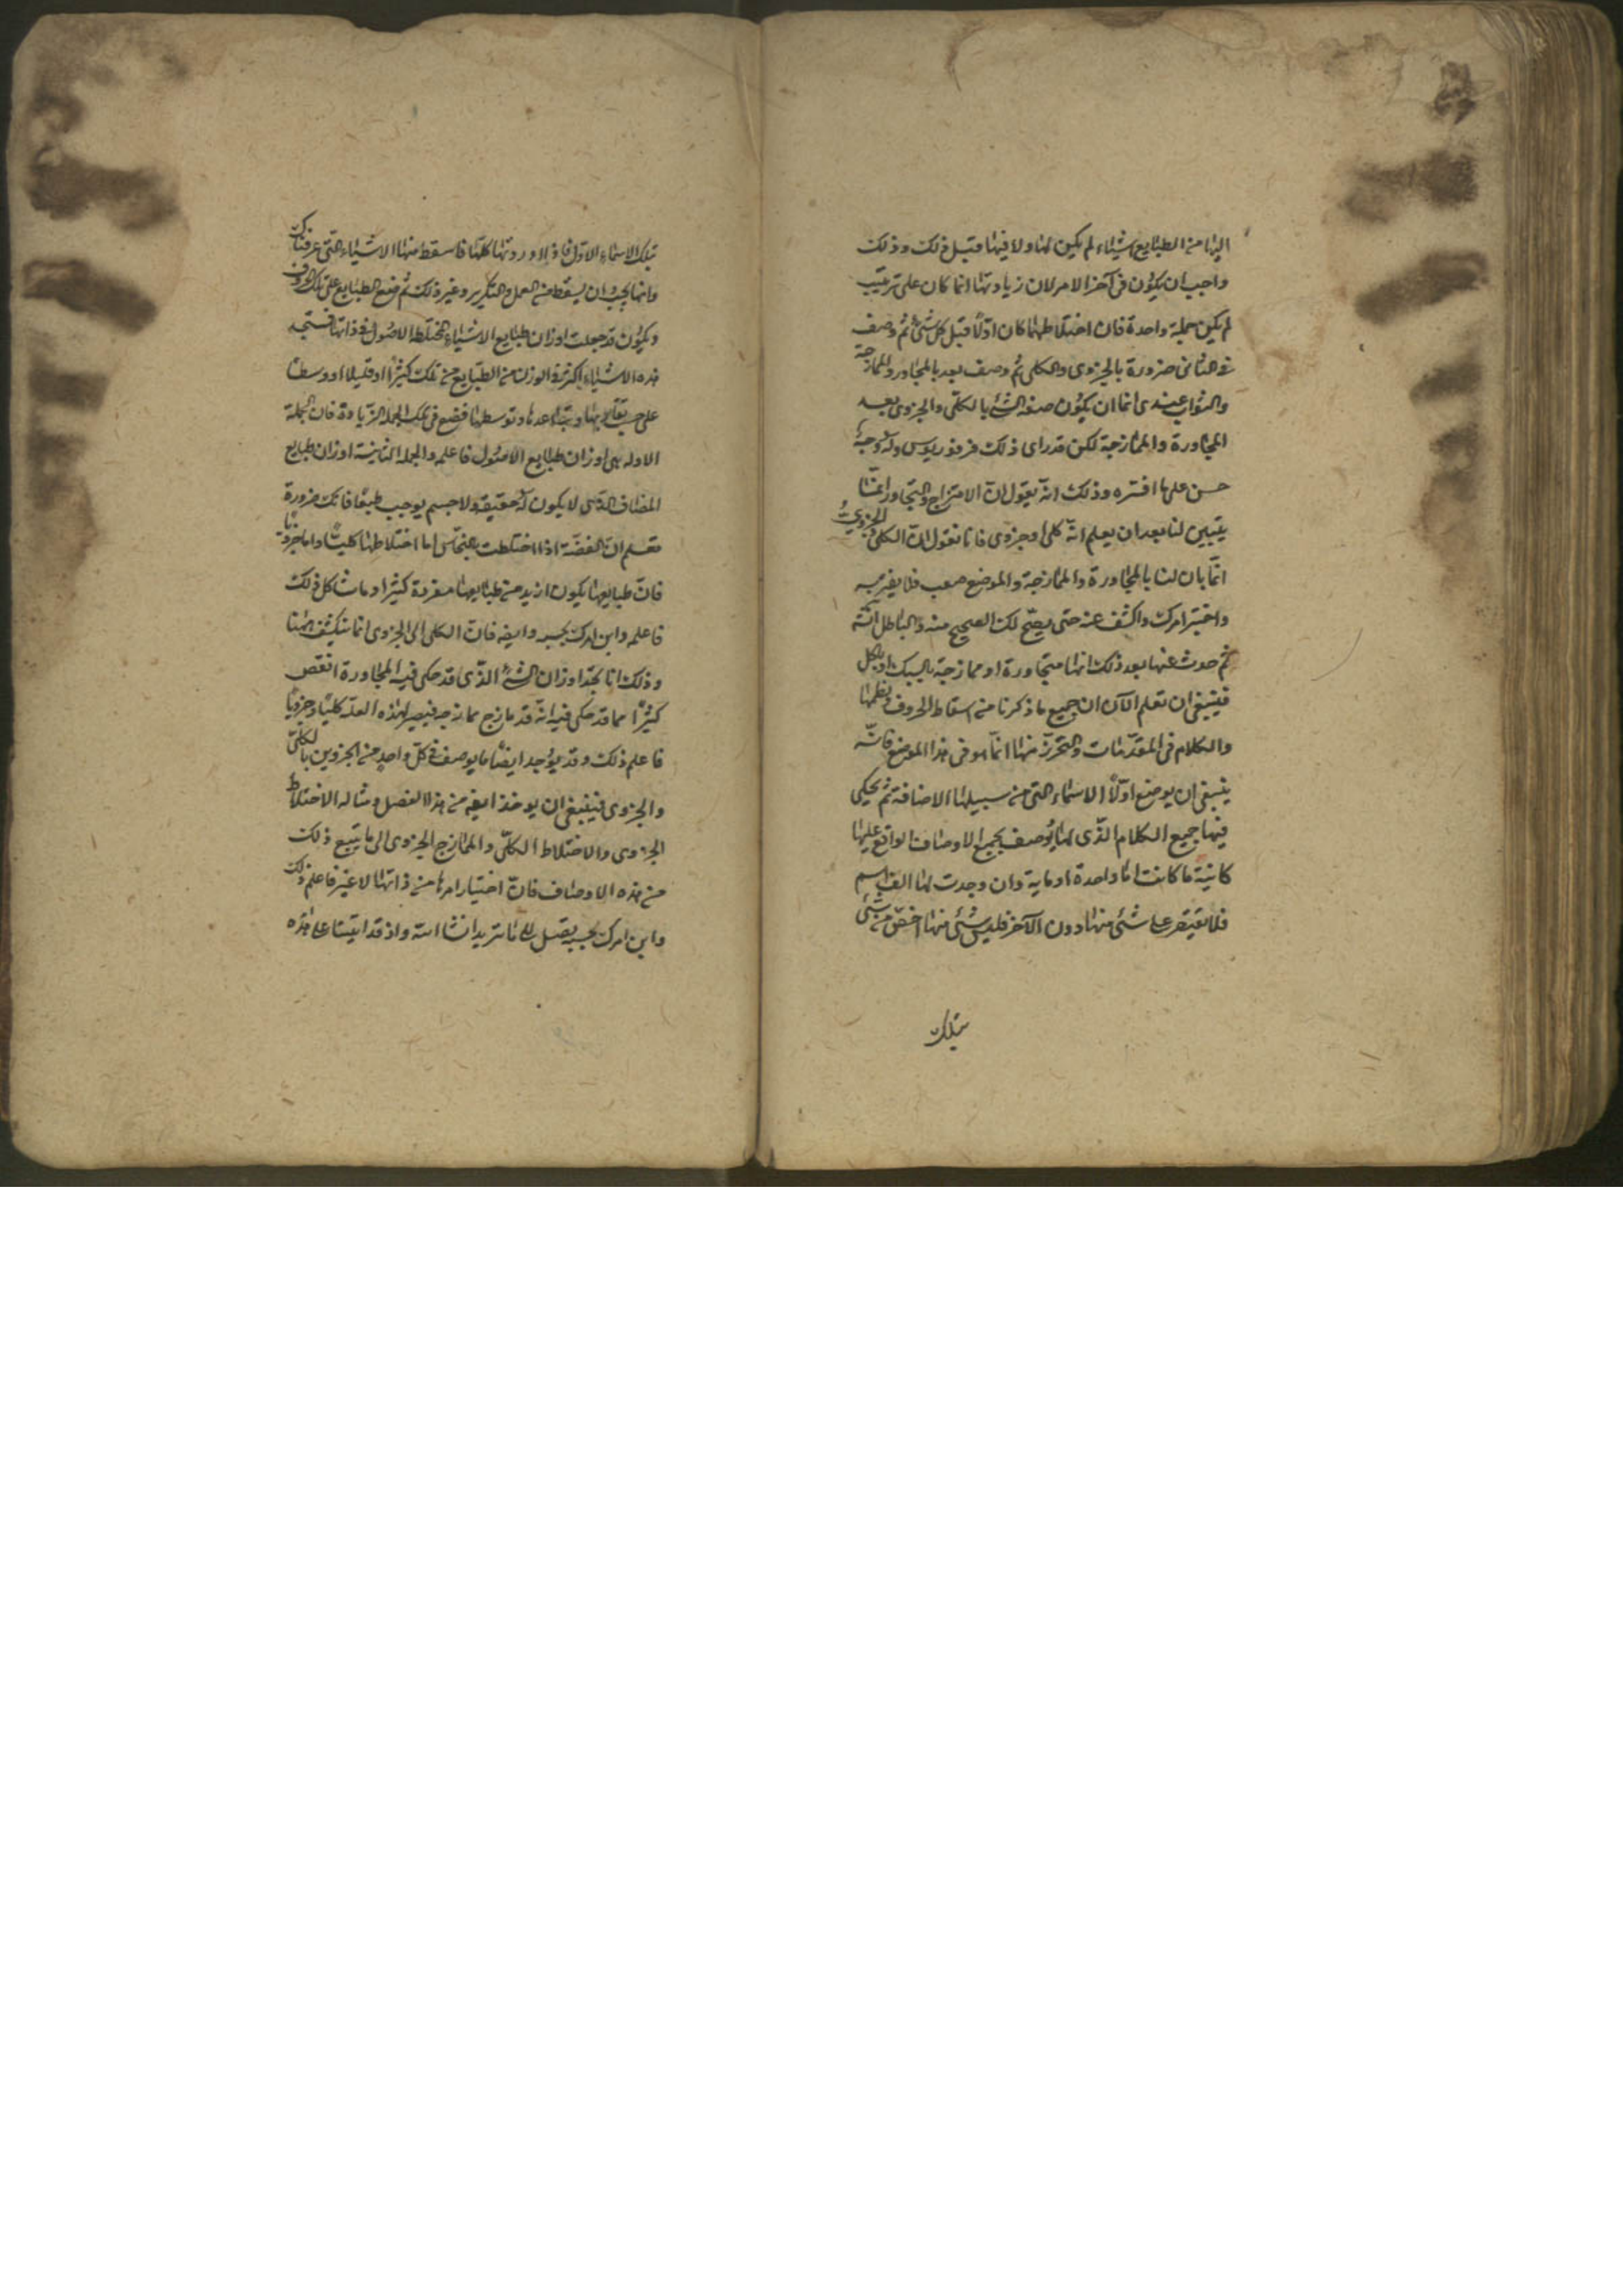 اليها من الطبايع اشياء لم يكن لها ولا فيها قبل ذلك وذلك
واجب ان يكون في آخر الامر لان زيادتها انما كان على ترتيب
لم يكن جملة واحدة فان اختلاطهما كان اوّلاً قبل كل شئ ثم وصف
في الثاني ضرورة بالجزوى والكلى ثم وصف بعد بالمجاور والممازجة
والصواب عندى انما ان يكون صفة الشئ بالكلّى والجزوى بعد
المجاورة والممازجة لكن قد راى ذلك فرفوريوس وله وجه
حسن على ما افسّره وذلك انه يقول انّ الامتزاج والتجاور انما
يتبين لنا بعد ان يعلم انّه كلى او جزوى فانا نقول انّ الكلى والجزوى
انّما بان لنا بالمجاورة والممازجة والموضع صعب فلا يغير به
واختبر امرك واكشف عنه حتى يصحّ لك الصحيح منه والباطل انّه
ثم حدث عنها بعد ذلك انها متجاورة او ممازجة بالسبك او بالكل
فينبغى ان تعلم الآن ان جميع ما ذكرنا من اسقاط الحروف ونظمها
والكلام في المقدّمات والتحرّز منها انّما هو في هذا الموضع فانّه
ينبغى ان يوضع اوّلاً الاسماء التى من سبيلها الاضافة ثم يحكى
فيها جميع الكلام الذّى لها يوصف بجميع الاوصاف الواقع عليها
كائنة ما كانت اما واحدة او ماية وان وجدت لها الف اسم
فلا تقتصر على شئ منها دون الآخر فليس شئ منها اخصّ من شئ
بتلك
بتلك الاسماء الاوّل فاذا اوردتها كلّها فاسقط منها الاشياء التى عرفناك
وانها يجب ان يسقط من العمل والتكرير وغير ذلك ثم ضع الطبايع على تلك الحروف
ويكون قد جعلت اوزان طبايع الاشياء المختلط الاصول في ذاتها فستجد
هذه الاشياء اكثر في الوزن من الطبايع من تلك كثيراً او قليلا او وسطاً
على حسب تقاربها وتباعدها وتوسطها فضع في تلك الجملة الزيادة فان الجملة
الاوله هى اوزان طبايع الاصول فاعلمه والجملة الثانية اوزان طبايع
المضاف الذى لا يكون له حقيقة ولا جسم يوجب طبعاً فانك ضرورة
تعلم انّ الفضّة اذا اختلطت بالنحاس اما اختلاطها كليّاً واما جزوياً
فانّ طبايعها يكون ازيد من طبايعها مفردة كثيرا وما شاكل ذلك
فاعلمه وابن امرك بحسبه وايضه فانّ الكلى الى الجزوى انما تنكشف ههنا
وذلك انا نجد اوزان الشئ الذّى قد حكى فيه المجاورة انقص
كثيراً مما قد حكى فيه انّه قد مازج ممازجه فيصير لهذه العلّه كليّاً وجزويّاً
فاعلم ذلك وقد يوجد ايضاً ما يوصف في كلّ واحد من الجزوين بالكلّى
والجزوى فينبغى ان يوخذ ايضه من هذا الفصل ومثاله الاختلاط
الجزوى والاختلاط الكلّى والممازج الجزوى الى ما يتبع ذلك
من هذه الاوصاف فانّ اختيار امرها من ذاتها لا غير فاعلم ذلك
وابن امرك بحسبه يصل الى ما تريد انشا الله واذ قد اتينا على هذه